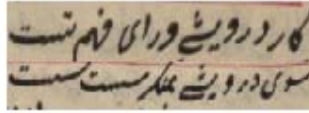 کار درویشے ورای فهم تست
سوی درویشے بمنگر سست سست